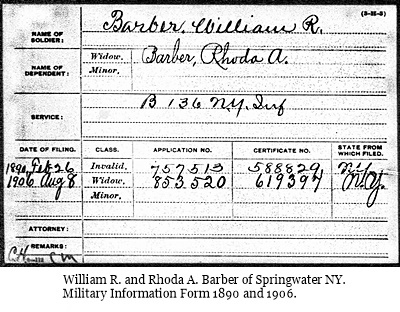 (3-H-3)
NAME OF SOLDIER: Barber, William R.
NAME OF DEPENDENT: Widow, Barber, Rhoda A.
Minor,
SERVICE: B 136 N.Y. Inf
DATE OF FILING. CLASS. APPLICATION NO. CERTIFICATE NO. STATE FROM WHICH FILED.
1890 Feb 26 Invalid, 757513 588829 N.Y.
1906 Aug 8 Widow, 853,520 619397 N.Y.
Minor,
ATTORNEY:
REMARKS:
William R. and Rhoda A. Barber of Springwater NY.
Military Information Form 1890 and 1906.